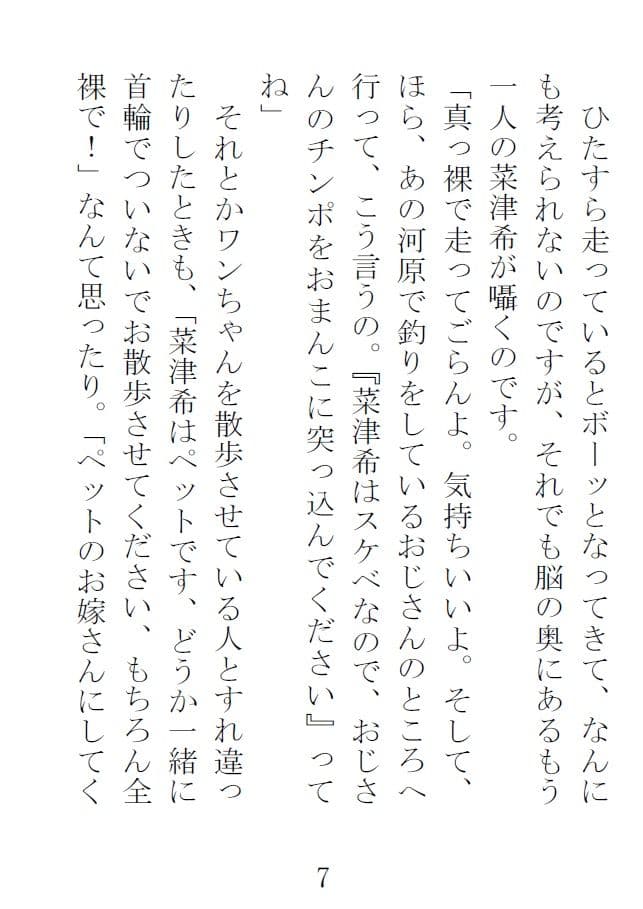 ひたすら走っているとボーッとなってきて、なんに
も考えられないのですが、それでも脳の奥にあるもう
一人の菜津希が囁くのです。
「真っ裸で走ってごらんよ。気持ちいいよ。そして、
ほら、あの河原で釣りをしているおじさんのところへ
行って、こう言うの。『菜津希はスケベなので、おじさ
んのチンポをおまんこに突っ込んでください』って
ね」
それとかワンちゃんを散歩させている人とすれ違っ
たりしたときも、「菜津希はペットです、どうか一緒に
首輪でついないでお散歩させてください、もちろん全
裸で！」なんて思ったり。「ペットのお嫁さんにしてく
7